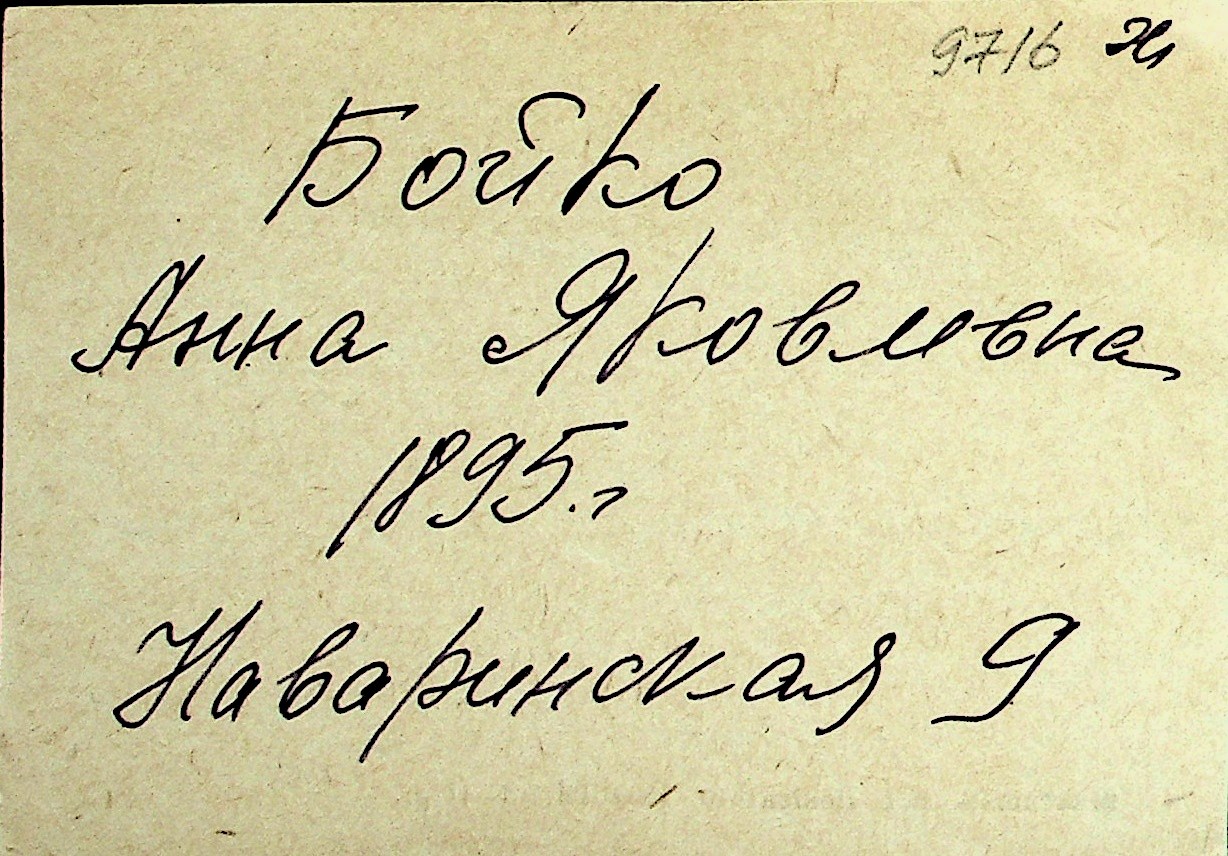 9716 Н
Бойко
Анна Яковлевна
1895.г
Наваринская 9